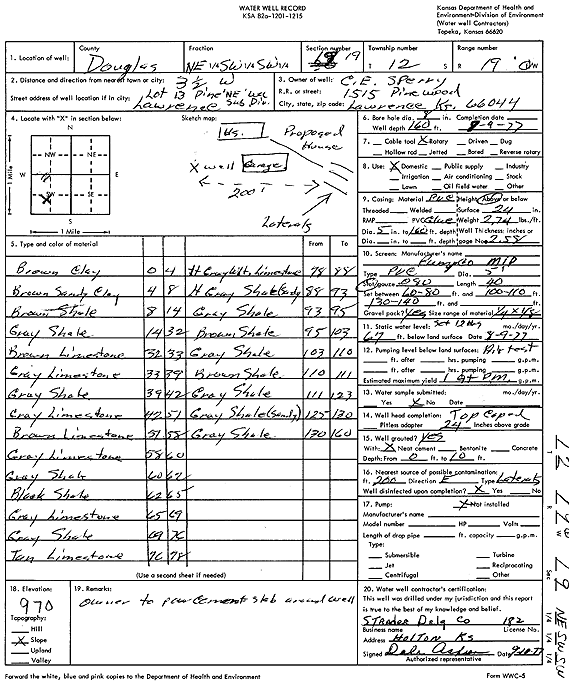 WATER WELL RECORD
KSA 82a-1201-1215
Kansas Department of Health and
Environment-Division of Environment
(Water well Contractors)
Topeka, Kansas 66620
1. Location of well:
County
Douglas
Fraction
NE 1/4 SW 1/4 SW 1/4
Section number
19
Township number
T 12 S
Range number
R 19 E/W
2. Distance and direction from nearest town or city: 3 1/2 W
Street address of well location if in city: Lot 13 Pine
Lawrence Sub Div.
3. Owner of well: C.E. Sperry
R.R. or street: 1515 Pinewood
City, state, zip code: Lawrence Ks. 66044
4. Locate with "X" in section below:
Sketch map:
N
NW NE
W E
SW SE
S
1 Mile
1 Mile
Hs.
Proposed House
X well
Garage
200'
Laterals
6. Bore hole dia. 8 in. Completion date
Well depth 160 ft. 8-9-77
7. Cable tool X Rotary Driven Dug
Hollow rod Jetted Bored Reverse rotary
8. Use: X Domestic Public supply Industry
Irrigation Air conditioning Stock
Lawn Oil field water Other
9. Casing: Material PVC Height: Above or below
Threaded Welded Surface 24 in.
RMP PVC Glue Weight 2.74 lbs./ft.
Dia. 5 in. to 160 ft. depth Wall Thickness: inches or
Dia. in. to ft. depth gage No. .258
5. Type and color of material
From To
From To
Brown Clay 0 4
H Gray Limestone 78 88
Brown Sandy Clay 4 8
H Gray Shale (Sandy) 88 93
Brown Shale 8 14
Gray Shale 93 95
Gray Shale 14 32
Brown Shale 95 103
Brown Limestone 32 33
Gray Shale 103 110
Gray Limestone 33 39
Brown Shale 110 111
Gray Shale 39 42
Gray Shale 111 123
Gray Limestone 42 51
Gray Shale (Sandy) 125 130
Brown Limestone 51 58
Gray Shale 130 160
Gray Limestone 58 60
Gray Shale 60 62
Black Shale 62 65
Gray Limestone 65 69
Gray Shale 69 76
Tan Limestone 76 78
(Use a second sheet if needed)
10. Screen: Manufacturer's name
Type PVC Dia. 5"
Slot/gauze .090 Length 40
Set between 60-80 ft. and 100-110 ft.
130-140 ft. and ft.
Gravel pack? Yes Size range of material
11. Static water level: mo./day/yr.
67 ft. below land surface Date 8-9-77
12. Pumping level below land surface:
ft. after hrs. pumping g.p.m.
ft. after hrs. pumping g.p.m.
Estimated maximum yield 1 g.p.m.
13. Water sample submitted: mo./day/yr.
Yes X No Date
14. Well head completion: Top Caped
Pitless adapter 24 Inches above grade
15. Well grouted? Yes
With: X Neat cement Bentonite Concrete
Depth: From 0 ft. to 10 ft.
16. Nearest source of possible contamination:
ft. 200 Direction E Type Laterals
Well disinfected upon completion? X Yes No
17. Pump: X Not installed
Manufacturer's name
Model number HP Volts
Length of drop pipe ft. capacity g.p.m.
Type:
Submersible Turbine
Jet Reciprocating
Centrifugal Other
18. Elevation:
970
Topography:
Hill
X Slope
Upland
Valley
19. Remarks:
owner to pour cement slab around well
20. Water well contractor's certification:
This well was drilled under my jurisdiction and this report
is true to the best of my knowledge and belief.
Strader Drlg Co 182
Business name License No.
Address Holton Ks
Signed Date
Authorized representative
T 12 R 19 W Sec 19 1/4 1/4 1/4 NE SW SW
Forward the white, blue and pink copies to the Department of Health and Environment
Form WWC-5